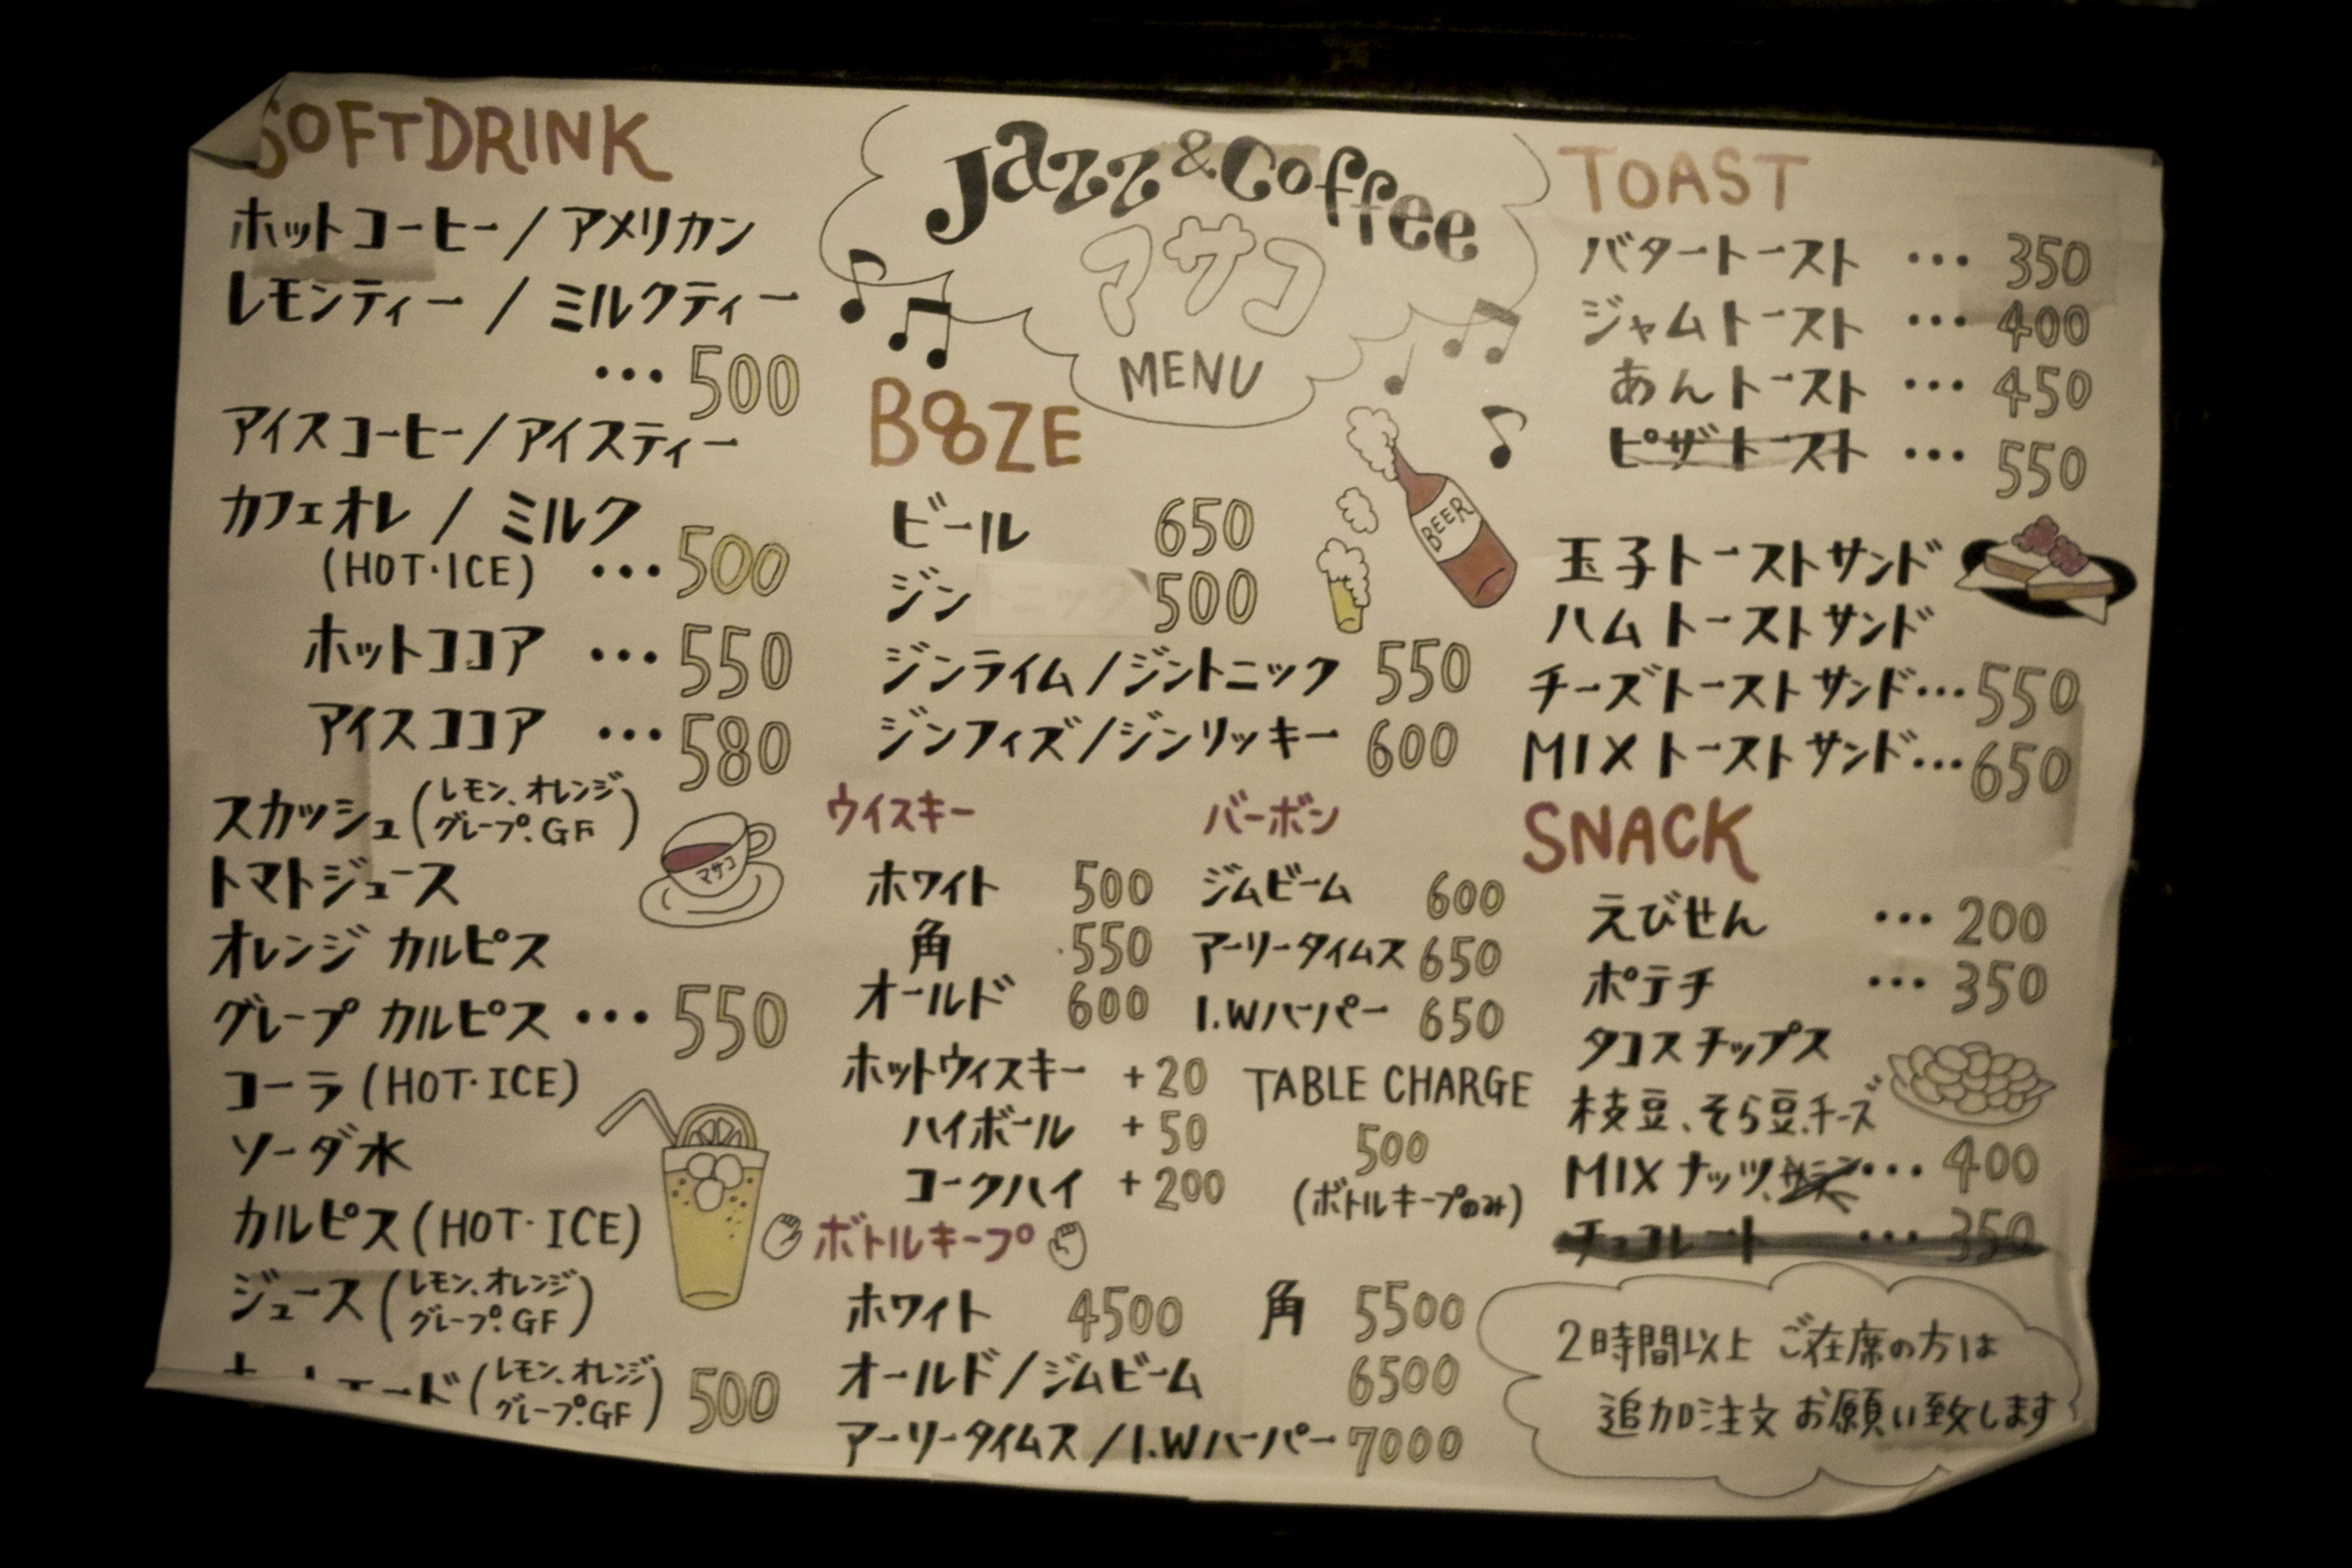 SOFTDRINK
ホットコーヒー/アメリカン
レモンティー / ミルクティー
… 500
アイスコーヒー/アイスティー
カフェオレ / ミルク
(HOT・ICE) … 500
ホットココア … 550
アイスココア … 580
スカッシュ(レモン、オレンジ
グレープ.GF)
マサコ
トマトジュース
オレンジ カルピス
グレープ カルピス … 550
コーラ (HOT・ICE)
ソーダ水
カルピス (HOT・ICE)
ジュース(レモン、オレンジ
グレープ.GF)
ード(レモン、オレンジ
グレープ.GF) 500
Jazz & Coffee
マサコ
MENU
BOOZE
ビール 650
BEER
ジントニック 500
ジンライム/ジントニック 550
ジンフィズ/ジンリッキー 600
ウイスキー
ホワイト 500
角 550
オールド 600
ホットウィスキー +20
ハイボール +50
コークハイ +200
バーボン
ジムビーム 600
アーリータイムス 650
I.Wハーパー 650
TABLE CHARGE
500
(ボトルキープのみ)
ボトルキープ
ホワイト 4500 角 5500
オールド/ジムビーム 6500
アーリータイムス/I.Wハーパー 7000
TOAST
バタートースト … 350
ジャムトースト … 400
あんトースト … 450
ピザトースト … 550
玉子トーストサンド
ハムトーストサンド
チーズトーストサンド … 550
MIXトーストサンド … 650
SNACK
えびせん … 200
ポテチ … 350
タコスチップス
枝豆、そら豆、チーズ
MIXナッツ、 … 400
チョコレート … 350
2時間以上 ご在席の方は
追加注文お願い致します